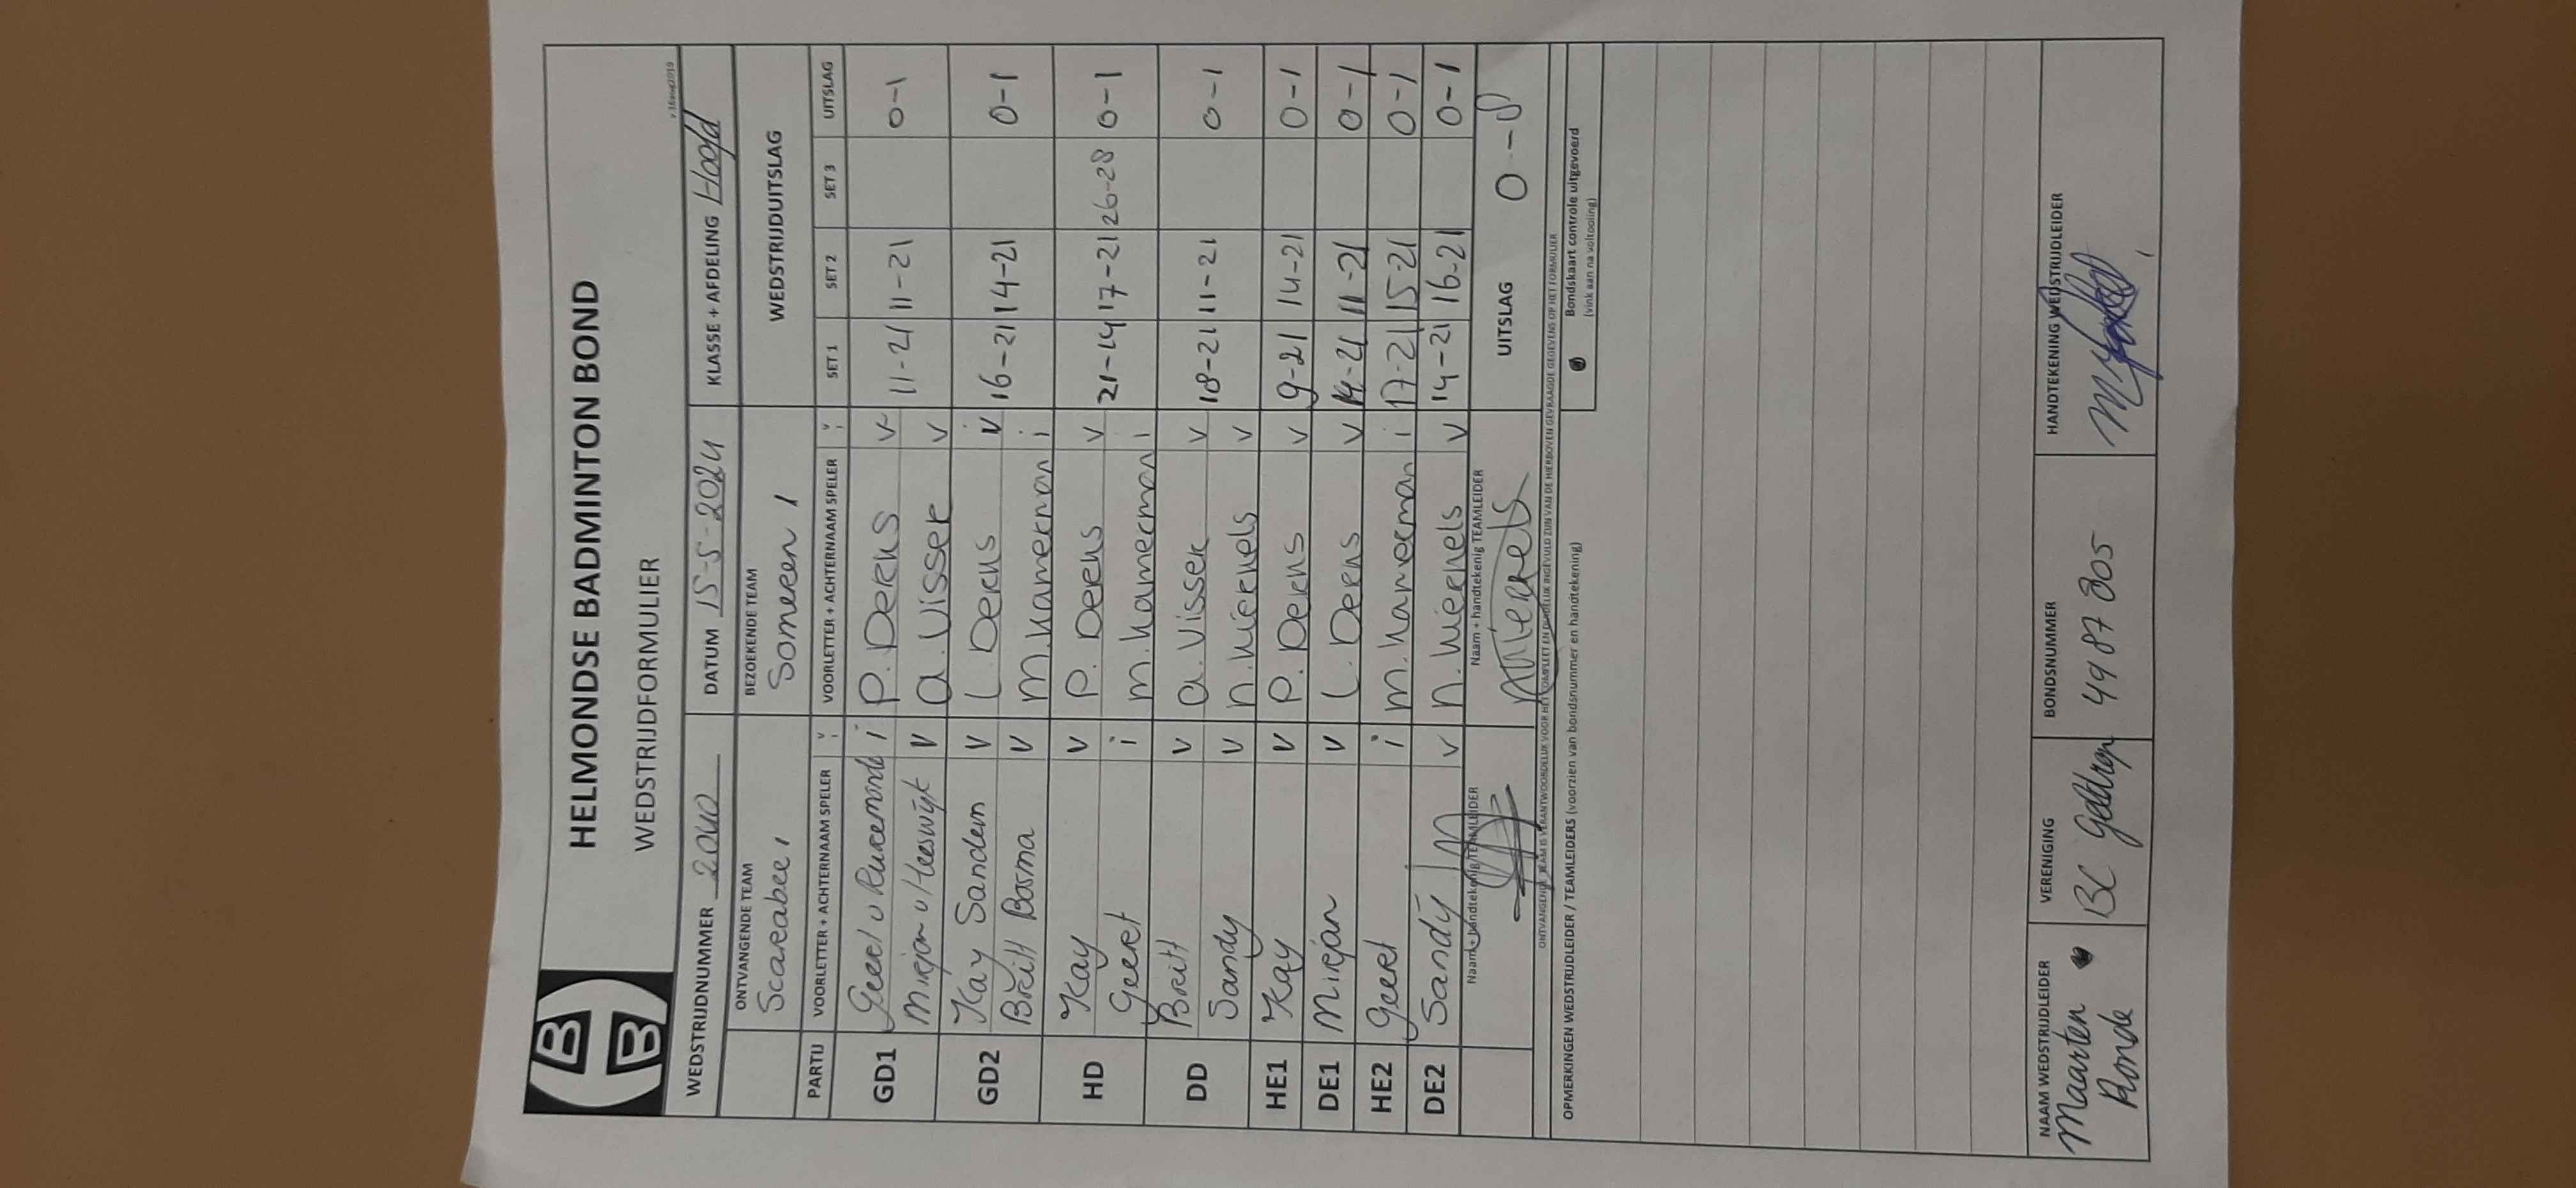 HELMONDSE BADMINTON BOND
WEDSTRIJDFORMULIER
WEDSTRIJDNUMMER 2040 DATUM 15-5-2024 KLASSE + AFDELING Hoofd
ONTVANGENDE TEAM BEZOEKENDE TEAM WEDSTRIJDUITSLAG
Scarabee 1 Someren 1
PARTIJ VOORLETTER + ACHTERNAAM SPELER V i VOORLETTER + ACHTERNAAM SPELER V i SET 1 SET 2 SET 3 UITSLAG
GD1 Geert v i P. Derks v 11-21 11-21 0-1
Mirjan v V a. Visser v
GD2 Kay Sanders V L. Derks v 16-21 14-21 0-1
Britt Bosma V m. Kamerman i
HD Kay V P. Derks v 21-14 17-21 26-28 0-1
Geert i m. Kamerman i
DD Britt V a. Visser v 18-21 11-21 0-1
Sandy V n. v
HE1 Kay V P. Derks v 9-21 14-21 0-1
DE1 Mirjan V L. Derks v 14-21 11-21 0-1
HE2 Geert i m. Kamerman i 17-21 15-21 0-1
DE2 Sandy V n. v 14-21 16-21 0-1
Naam + handtekenig TEAMLEIDER Naam + handtekenig TEAMLEIDER UITSLAG 0-8
ONTVANGENDE TEAM IS VERANTWOORDELIJK VOOR HET COMPLEET EN DUIDELIJK INGEVULD ZIJN VAN DE HIERBOVEN GEVRAAGDE GEGEVENS OP HET FORMULIER
OPMERKINGEN WEDSTRIJDLEIDER / TEAMLEIDERS (voorzien van bondsnummer en handtekening) Bondskaart controle uitgevoerd
(vink aan na voltooiing)
NAAM WEDSTRIJDLEIDER VERENIGING BONDSNUMMER HANDTEKENING WEDSTRIJDLEIDER
Maarten BC Geldrop 4987805
Ronde